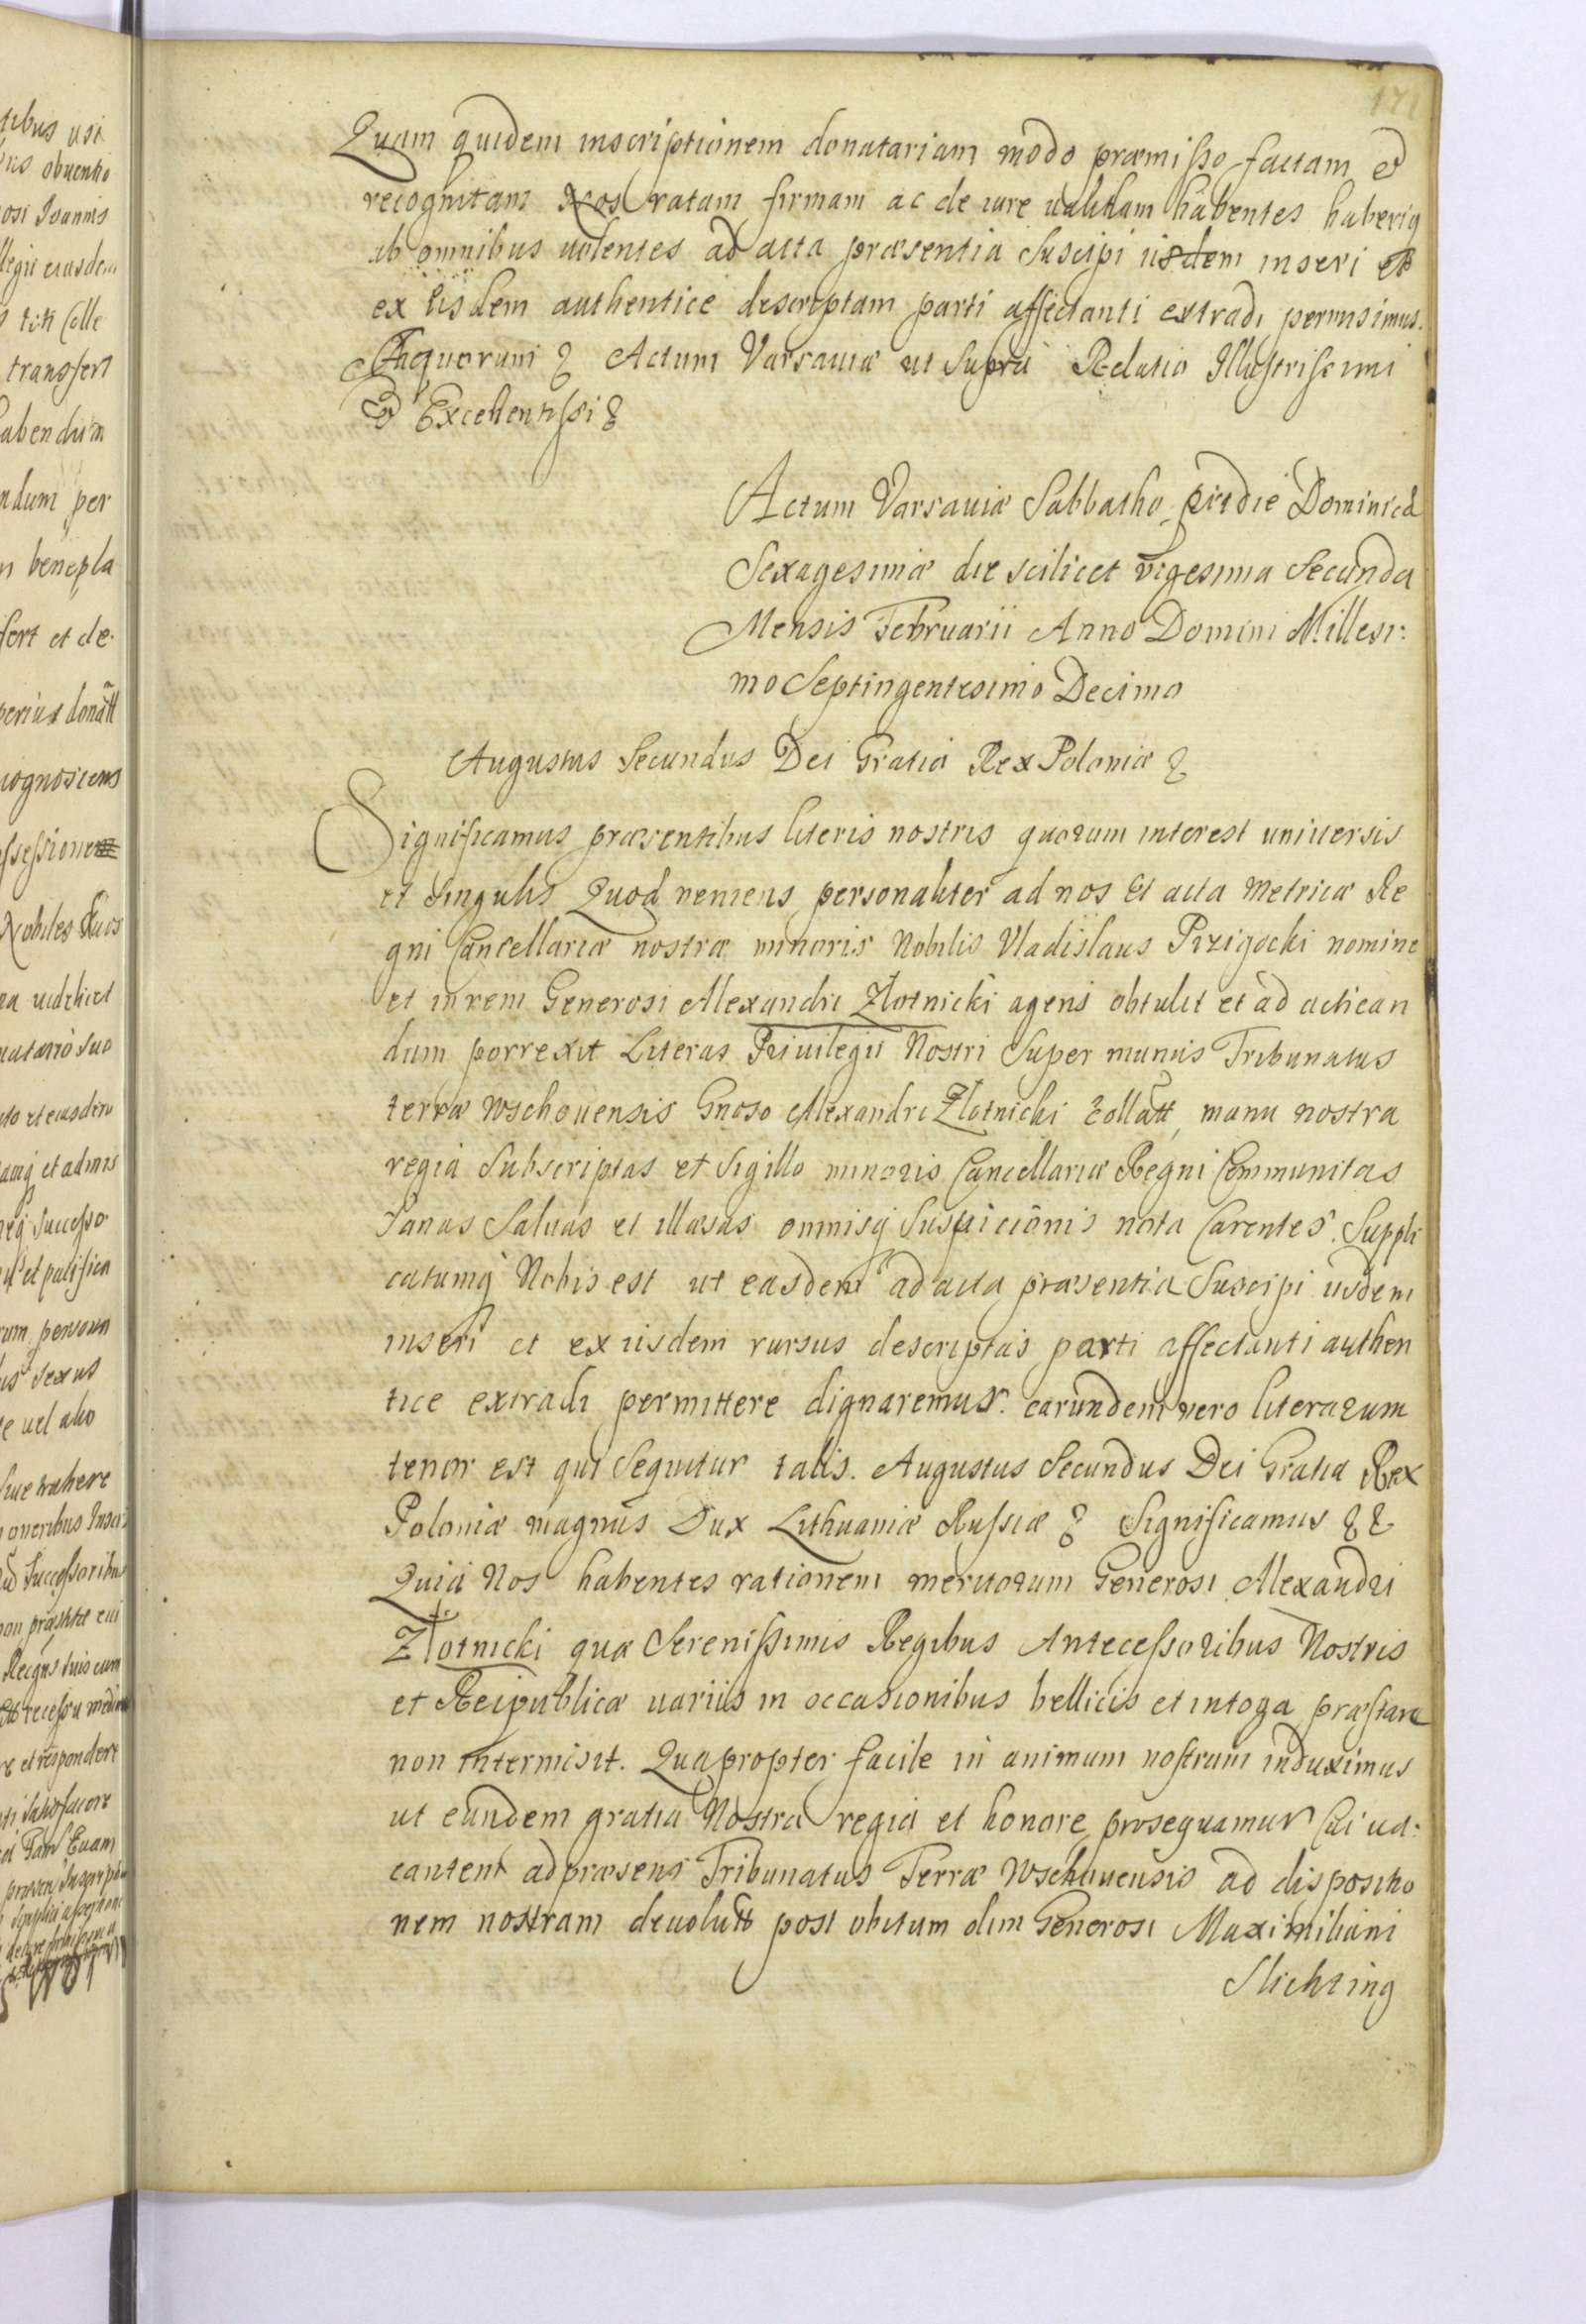 171
Quam quidem inscriptionem donatariam modo præmisso factam et
recognitam Nos ratam firmam ac de iure ualidam habentes haberiq
ab omnibus uolentes ad acta præsentia Suscipi iisdem inseri et
ex iisdem authentice descriptam parti affectanti extradi permisimus.
In quorum & Actum Varsauiæ ut Supra Relatio Illustrissimi
et Excellentissi &
Actum Varsauiæ Sabbatho pridie Dominicæ
Sexagesimæ die scilicet vigesima Secunda
Mensis Februarii Anno Domini Millesi:
mo Septingentesimo Decimo
Augustus Secundus Dei Gratia Rex Poloniæ &
Significamus præsentibus literis nostris quorum interest uniuersis
et singulis Quod veniens personaliter ad nos et acta Metricæ Re
gni Cancellariæ nostræ minoris Nobilis Vladislaus Przigocki nomine
et in rem Generosi Alexandri Zlotnicki agens obtulit et ad actican
dum porrexit Literas Priuilegii Nostri Super munus Tribunatus
terræ Wschouensis Gnoso Alexandri Zlotnicki collatt, manu nostra
regia Subscriptas et Sigillo minoris Cancellariæ Regni Communitas
Sanas Saluas et illæsas omnisq Suspicionis nota Carentes. Suppli
catumq Nobis est ut easdem ad acta præsentia Suscipi iisdem
inseri et ex iisdem rursus descriptas parti affectanti authen
tice extradi permittere dignaremur. earundem vero literarum
tenor est qui Sequitur talis. Augustus Secundus Dei Gratia Rex
Poloniæ magnus Dux Lithuaniæ Russiæ & Significamus &&
Quia Nos habentes rationem meritorum Generosi Alexandri
Zlotnicki quæ Serenissimis Regibus Antecessoribus Nostris
et Reipublicæ uariis in occasionibus bellicis et in toga præstare
non intermisit. Quapropter facile in animum nostrum induximus
ut eundem gratia Nostra regia et honore prosequamur Cui ua:
cantem ad præsens Tribunatus Terræ Wschouensis ad dispositio
nem nostram deuolutt post obitum olim Generosi Maximiliani
Slichting